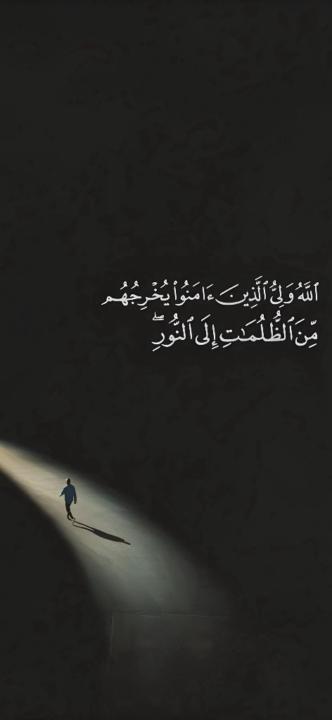 ٱللَّهُ وَلِىُّ ٱلَّذِينَ ءَامَنُوا۟ يُخْرِجُهُم
مِّنَ ٱلظُّلُمَـٰتِ إِلَى ٱلنُّورِ ۖ